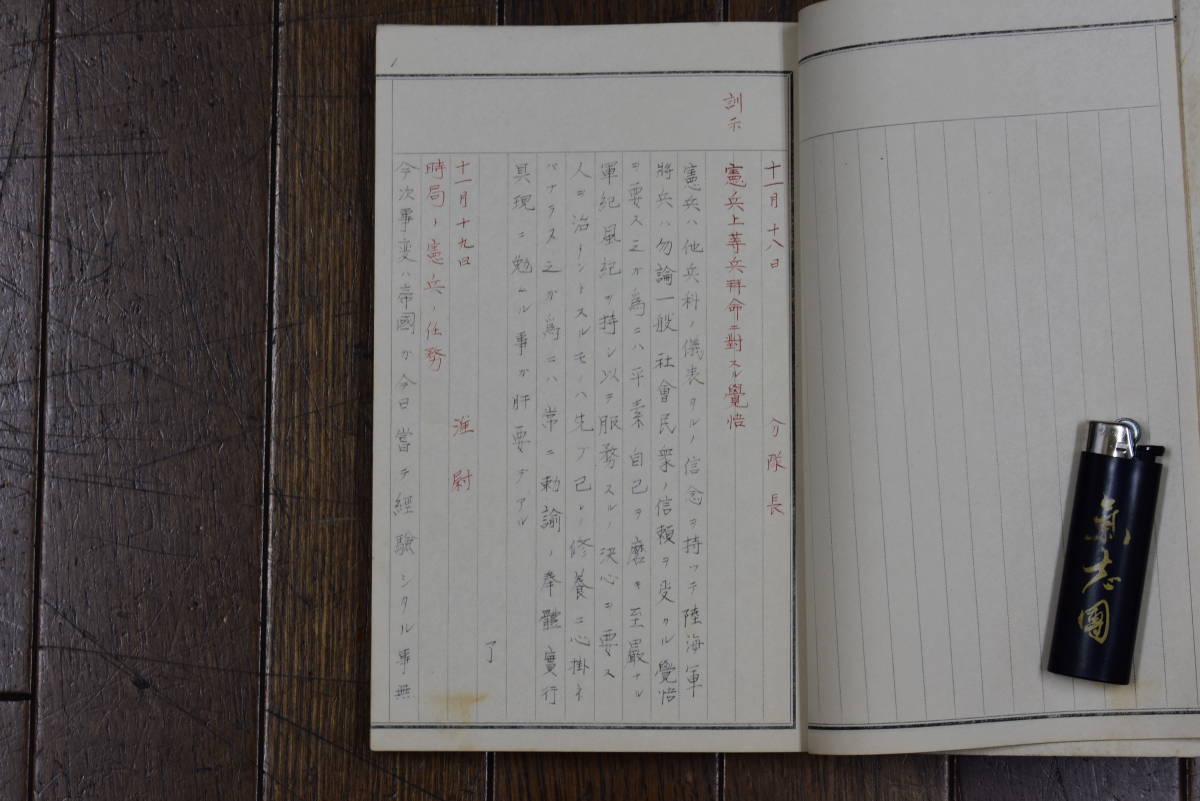 訓示
十一月十八日 分隊長
憲兵上等兵拜命ニ對スル覺悟
憲兵ハ他兵科ノ儀表タルノ信念ヲ持ツテ陸海軍
將兵ハ勿論一般社會民衆ノ信頼ヲ受クル覺悟
ヲ要ス之カ為ニハ平素自己ヲ磨キ至嚴ナル
軍紀風紀ヲ持シ以テ服務スルノ決心ヲ要ス
人ヲ治メントスルモノハ先ツ己レノ修養ニ心掛ネ
バナラヌ之カ為ニハ常ニ勅諭ノ奉體實行
具現ニ勉ムル事カ肝要デアル
了
十一月十九日 准尉
時局ト憲兵ノ任務
今次事変ハ帝國カ今日嘗テ經驗シタル事無
1
氣志團